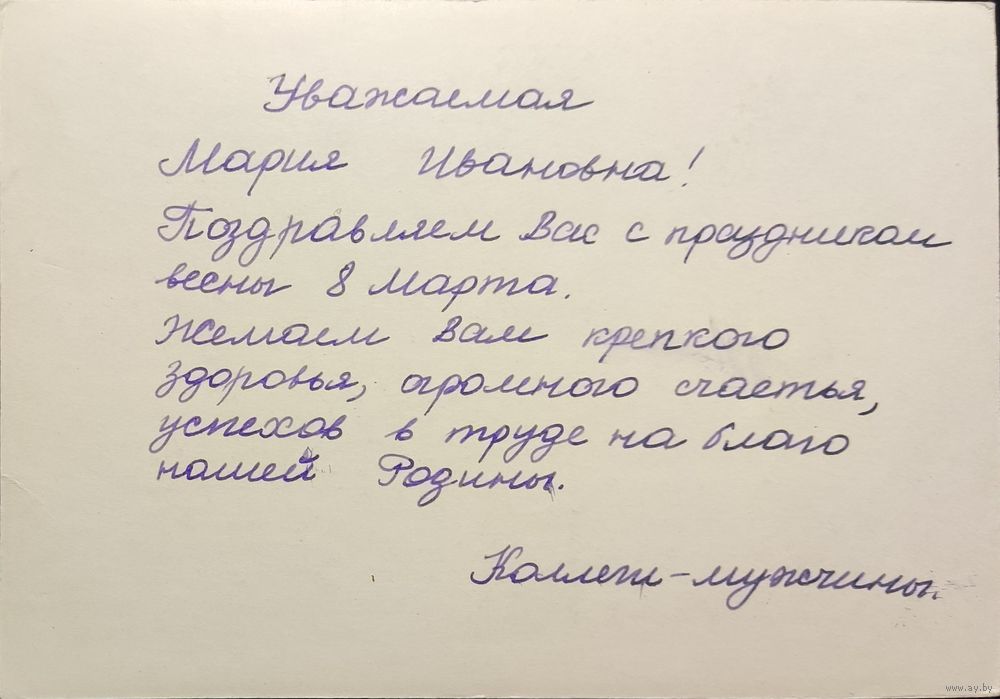 Уважаемая
Мария Ивановна!
Поздравляем Вас с праздником
весны 8 Марта.
Желаем Вам крепкого
здоровья, огромного счастья,
успехов в труде на благо
нашей Родины.
Коллеги-мужчины.
www.ay.by